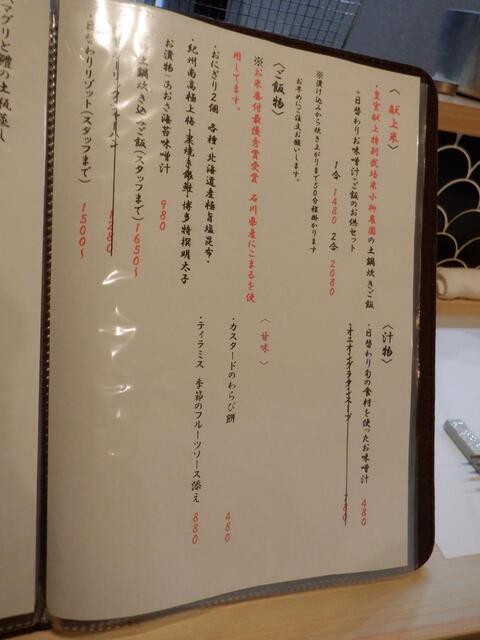 〈献上米〉
・皇室献上特別栽培米小柳農園の土鍋炊きご飯
+日替わりお味噌汁・ご飯のお供セット
1合 1480 2合 2080
※漬け込みから炊き上がりまで50分程掛かります
お早めにご注文お願いします。
〈ご飯物〉
※お米番付最優秀賞受賞 石川県産にこまるを使
用してます。
・おにぎり2個 各種・北海道産極旨塩昆布・
紀州南高極上梅・炭焼き銀鮭・博多特撰明太子
お漬物・あおさ海苔味噌汁
980
土鍋炊き込みご飯(スタッフまで) 1650~
チャーハン 1280
・日替わりリゾット(スタッフまで) 1500~
〈汁物〉
・日替わり旬の食材を使ったお味噌汁 480
・オニオングラタンスープ 780
〈甘味〉
・カスタードのわらび餅 480
・ティラミス 季節のフルーツソース添え 880
マグリと鱧の土瓶蒸し